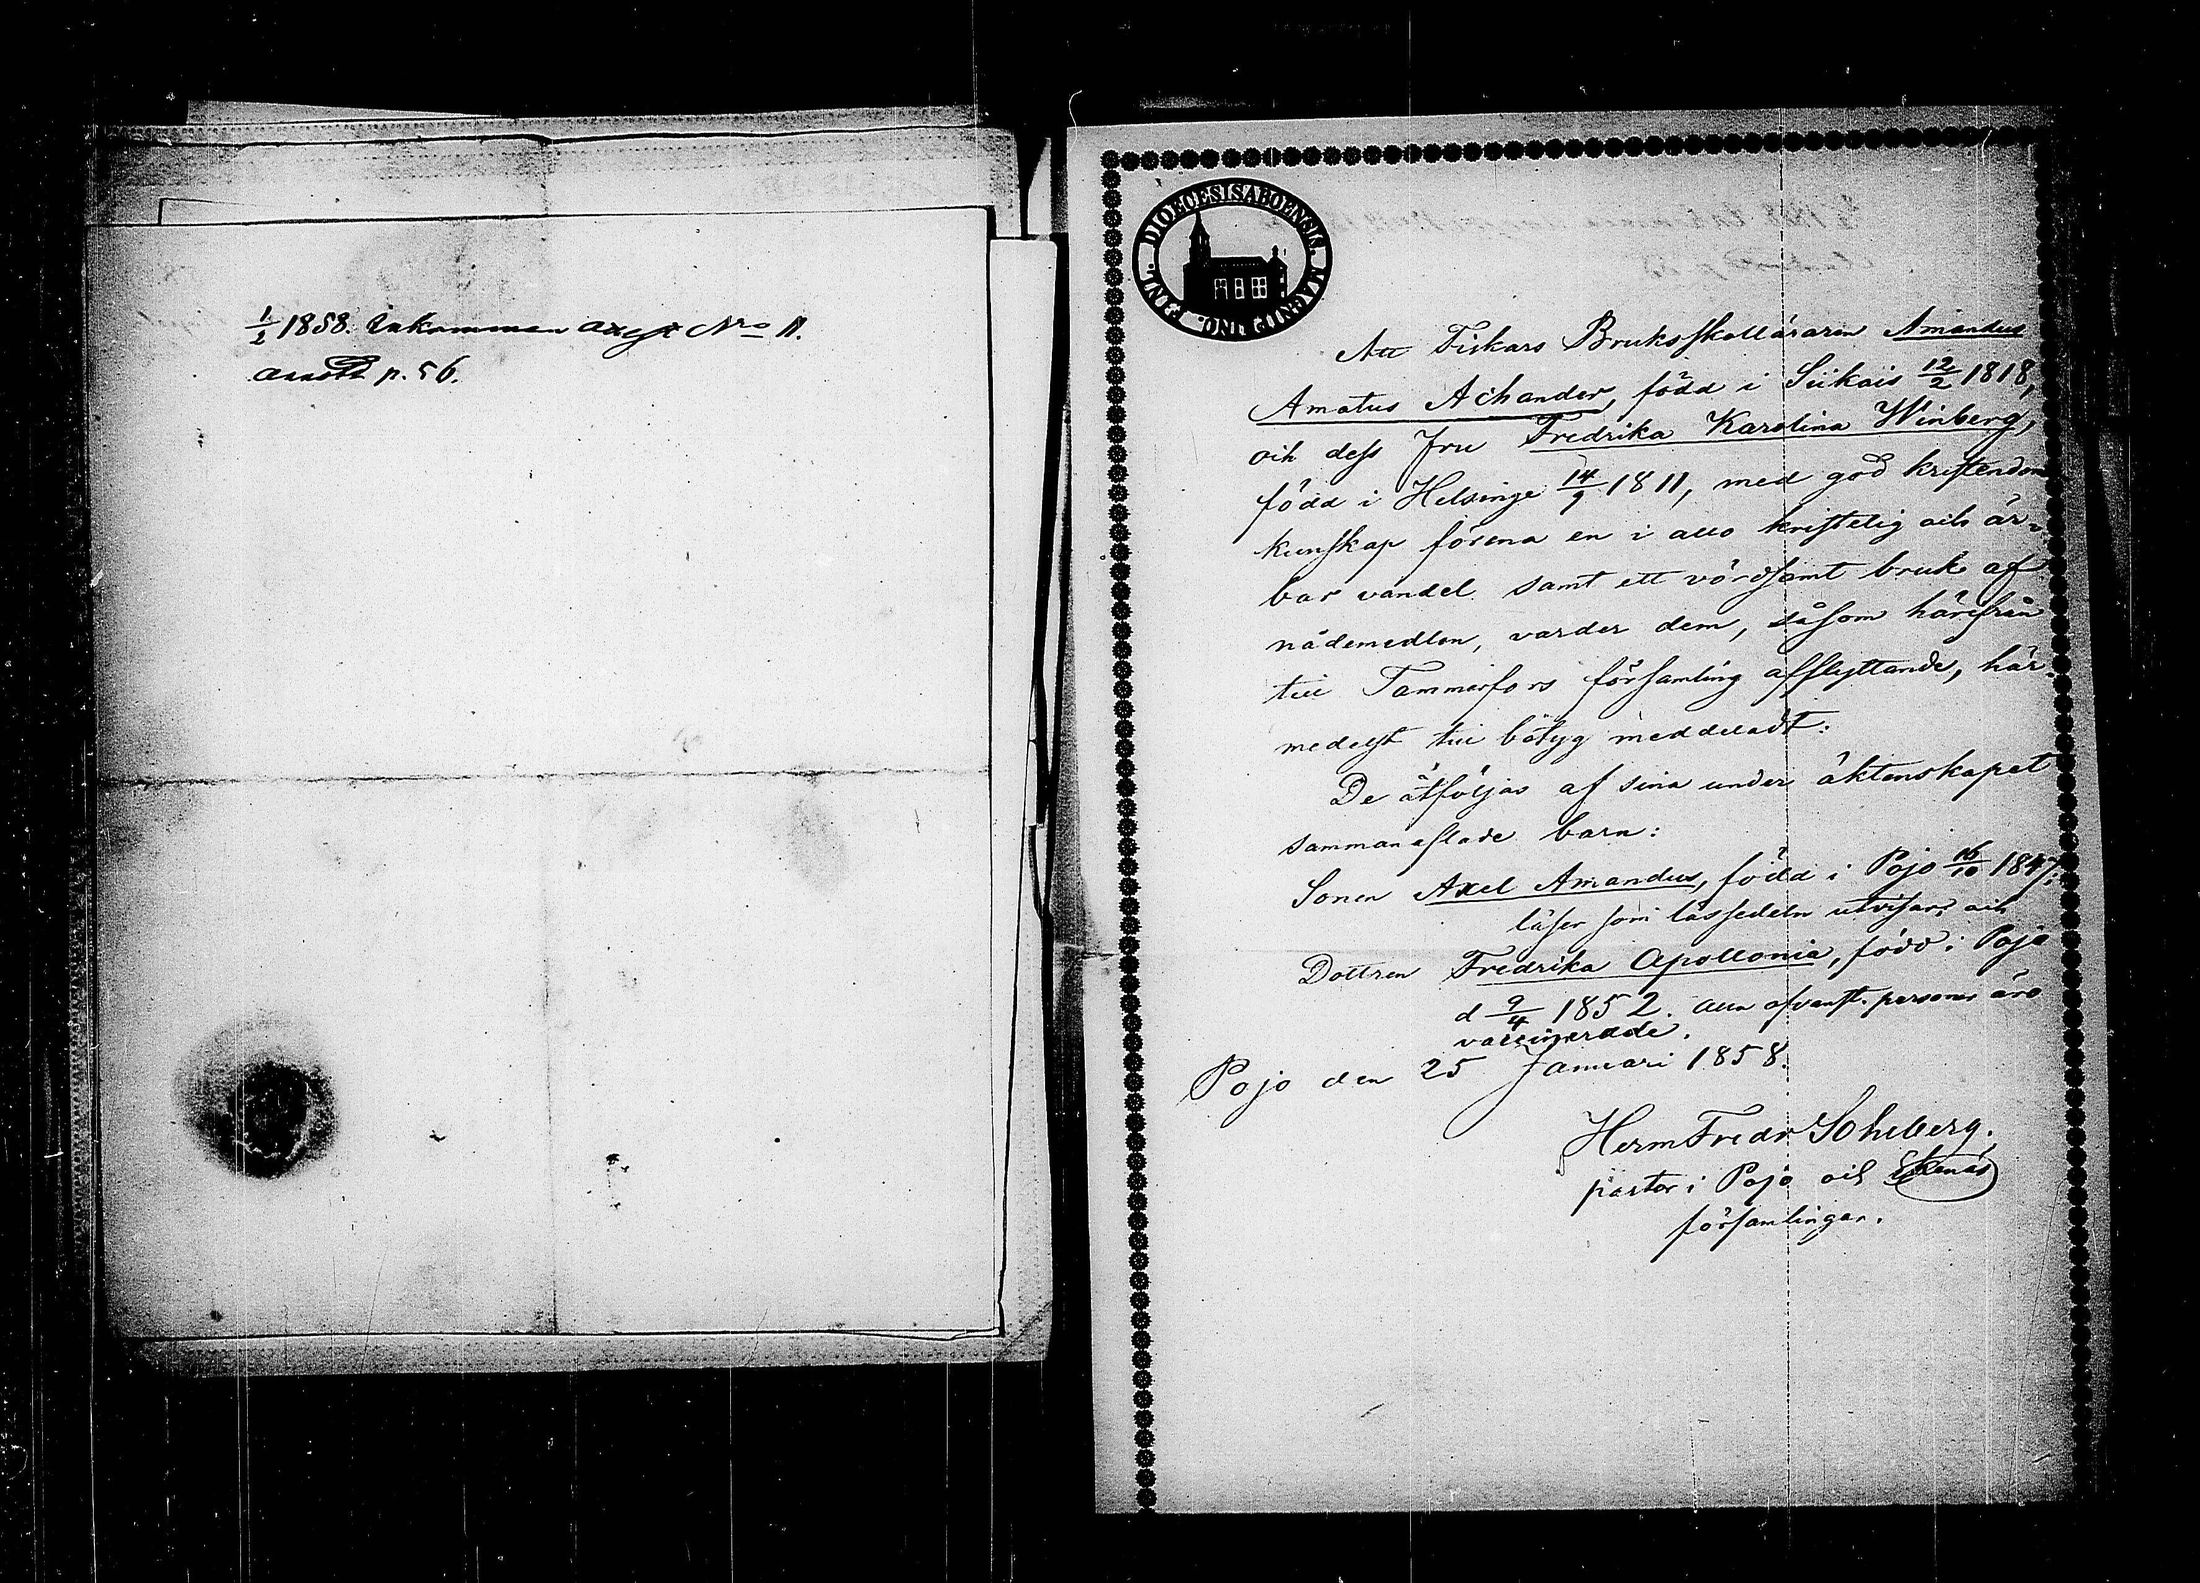 1/2 1858. Inkommen Nro 11.
p. 56.
DIOECESIS ABOENSIS. MAGNI DUC. FINL.
Att Fiskars Bruksskolläraren Amandus
Amatus Achander, född i Siikais 12/2 1818,
och dess Fru Fredrika Karolina Winberg,
född i Helsinge 14/9 1811, med god kristendoms
kunskap förena en i allo kristelig och är-
bar vandel samt ett vördsamt bruk af
nådemedlen, varder dem, såsom härifrån
till Tammerfors församling afflyttande, här-
medelst till betyg meddeladt.
De åtföljas af sina under äktenskapet
sammanaflade barn:
Sonen Axel Amandus, född i Pojo 16/10 1847;
läser som lässedeln utvisar, och
Dottren Fredrika Apollonia, född i Pojo
d 9/4 1852. Alla ofvanst. personer äro
vaccinerade.
Pojo den 25 Januari 1858.
Herm Fredr Sohlberg.
pastor i Pojo och Ekenäs
församlingar.